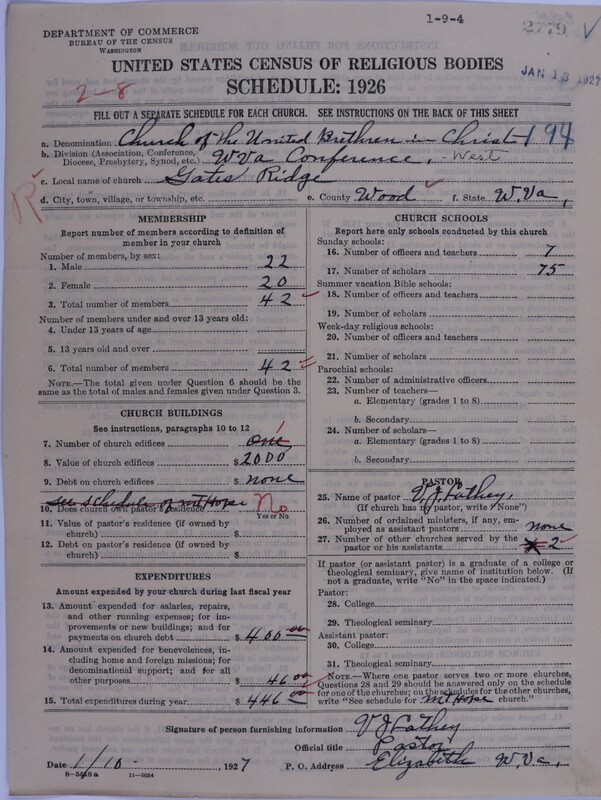 1-9-4
2779
DEPARTMENT OF COMMERCE
BUREAU OF THE CENSUS
WASHINGTON
JAN 13 1927
UNITED STATES CENSUS OF RELIGIOUS BODIES
2-8
SCHEDULE: 1926
FILL OUT A SEPARATE SCHEDULE FOR EACH CHURCH. SEE INSTRUCTIONS ON THE BACK OF THIS SHEET
a. Denomination Church of the United Brethren in Christ 194
b. Division (Association, Conference, Diocese, Presbytery, Synod, etc.) W Va Conference, - West
c. Local name of church Gates Ridge
R
d. City, town, village, or township, etc. e. County Wood f. State W. Va,
MEMBERSHIP
Report number of members according to definition of
member in your church
Number of members, by sex:
1. Male 22
2. Female 20
3. Total number of members 42
Number of members under and over 13 years old:
4. Under 13 years of age
5. 13 years old and over
6. Total number of members 42
NOTE.—The total given under Question 6 should be
the same as the total of males and females given under Question 3.
CHURCH BUILDINGS
See instructions, paragraphs 10 to 12
7. Number of church edifices one 1
8. Value of church edifices $2000
9. Debt on church edifices $ none
see schedule of mt Hope
10. Does church own pastor's residence No
Yes or No
11. Value of pastor's residence (if owned by
church) $
12. Debt on pastor's residence (if owned by
church) $
EXPENDITURES
Amount expended by your church during last fiscal year
13. Amount expended for salaries, repairs,
and other running expenses; for im-
provements or new buildings; and for
payments on church debt $ 400 00
14. Amount expended for benevolences,
including home and foreign missions; for
denominational support; and for all
other purposes $ 46 00
15. Total expenditures during year $ 446 00
CHURCH SCHOOLS
Report here only schools conducted by this church
Sunday schools:
16. Number of officers and teachers 7
17. Number of scholars 75
Summer vacation Bible schools:
18. Number of officers and teachers
19. Number of scholars
Week-day religious schools:
20. Number of officers and teachers
21. Number of scholars
Parochial schools:
22. Number of administrative officers
23. Number of teachers—
a. Elementary (grades 1 to 8)
b. Secondary
24. Number of scholars—
a. Elementary (grades 1 to 8)
b. Secondary
PASTOR
25. Name of pastor V. J. Lathey,
(If church has no pastor, write "None")
26. Number of ordained ministers, if any, em-
ployed as assistant pastors none
27. Number of other churches served by the
pastor or his assistants 2
If pastor (or assistant pastor) is a graduate of a college or
theological seminary, give name of institution below. (If
not a graduate, write "No" in the space indicated.)
Pastor:
28. College
29. Theological seminary
Assistant pastor:
30. College
31. Theological seminary
NOTE.—Where one pastor serves two or more churches,
Questions 28 and 29 should be answered only on the schedule
for one of the churches; on the schedules for the other churches,
write "See schedule for Mt Hope church."
Signature of person furnishing information V J Lathey
Official title Pastor
Date 1/10- , 1927 P. O. Address Elizabeth W. Va,
8-5518a 11-9024